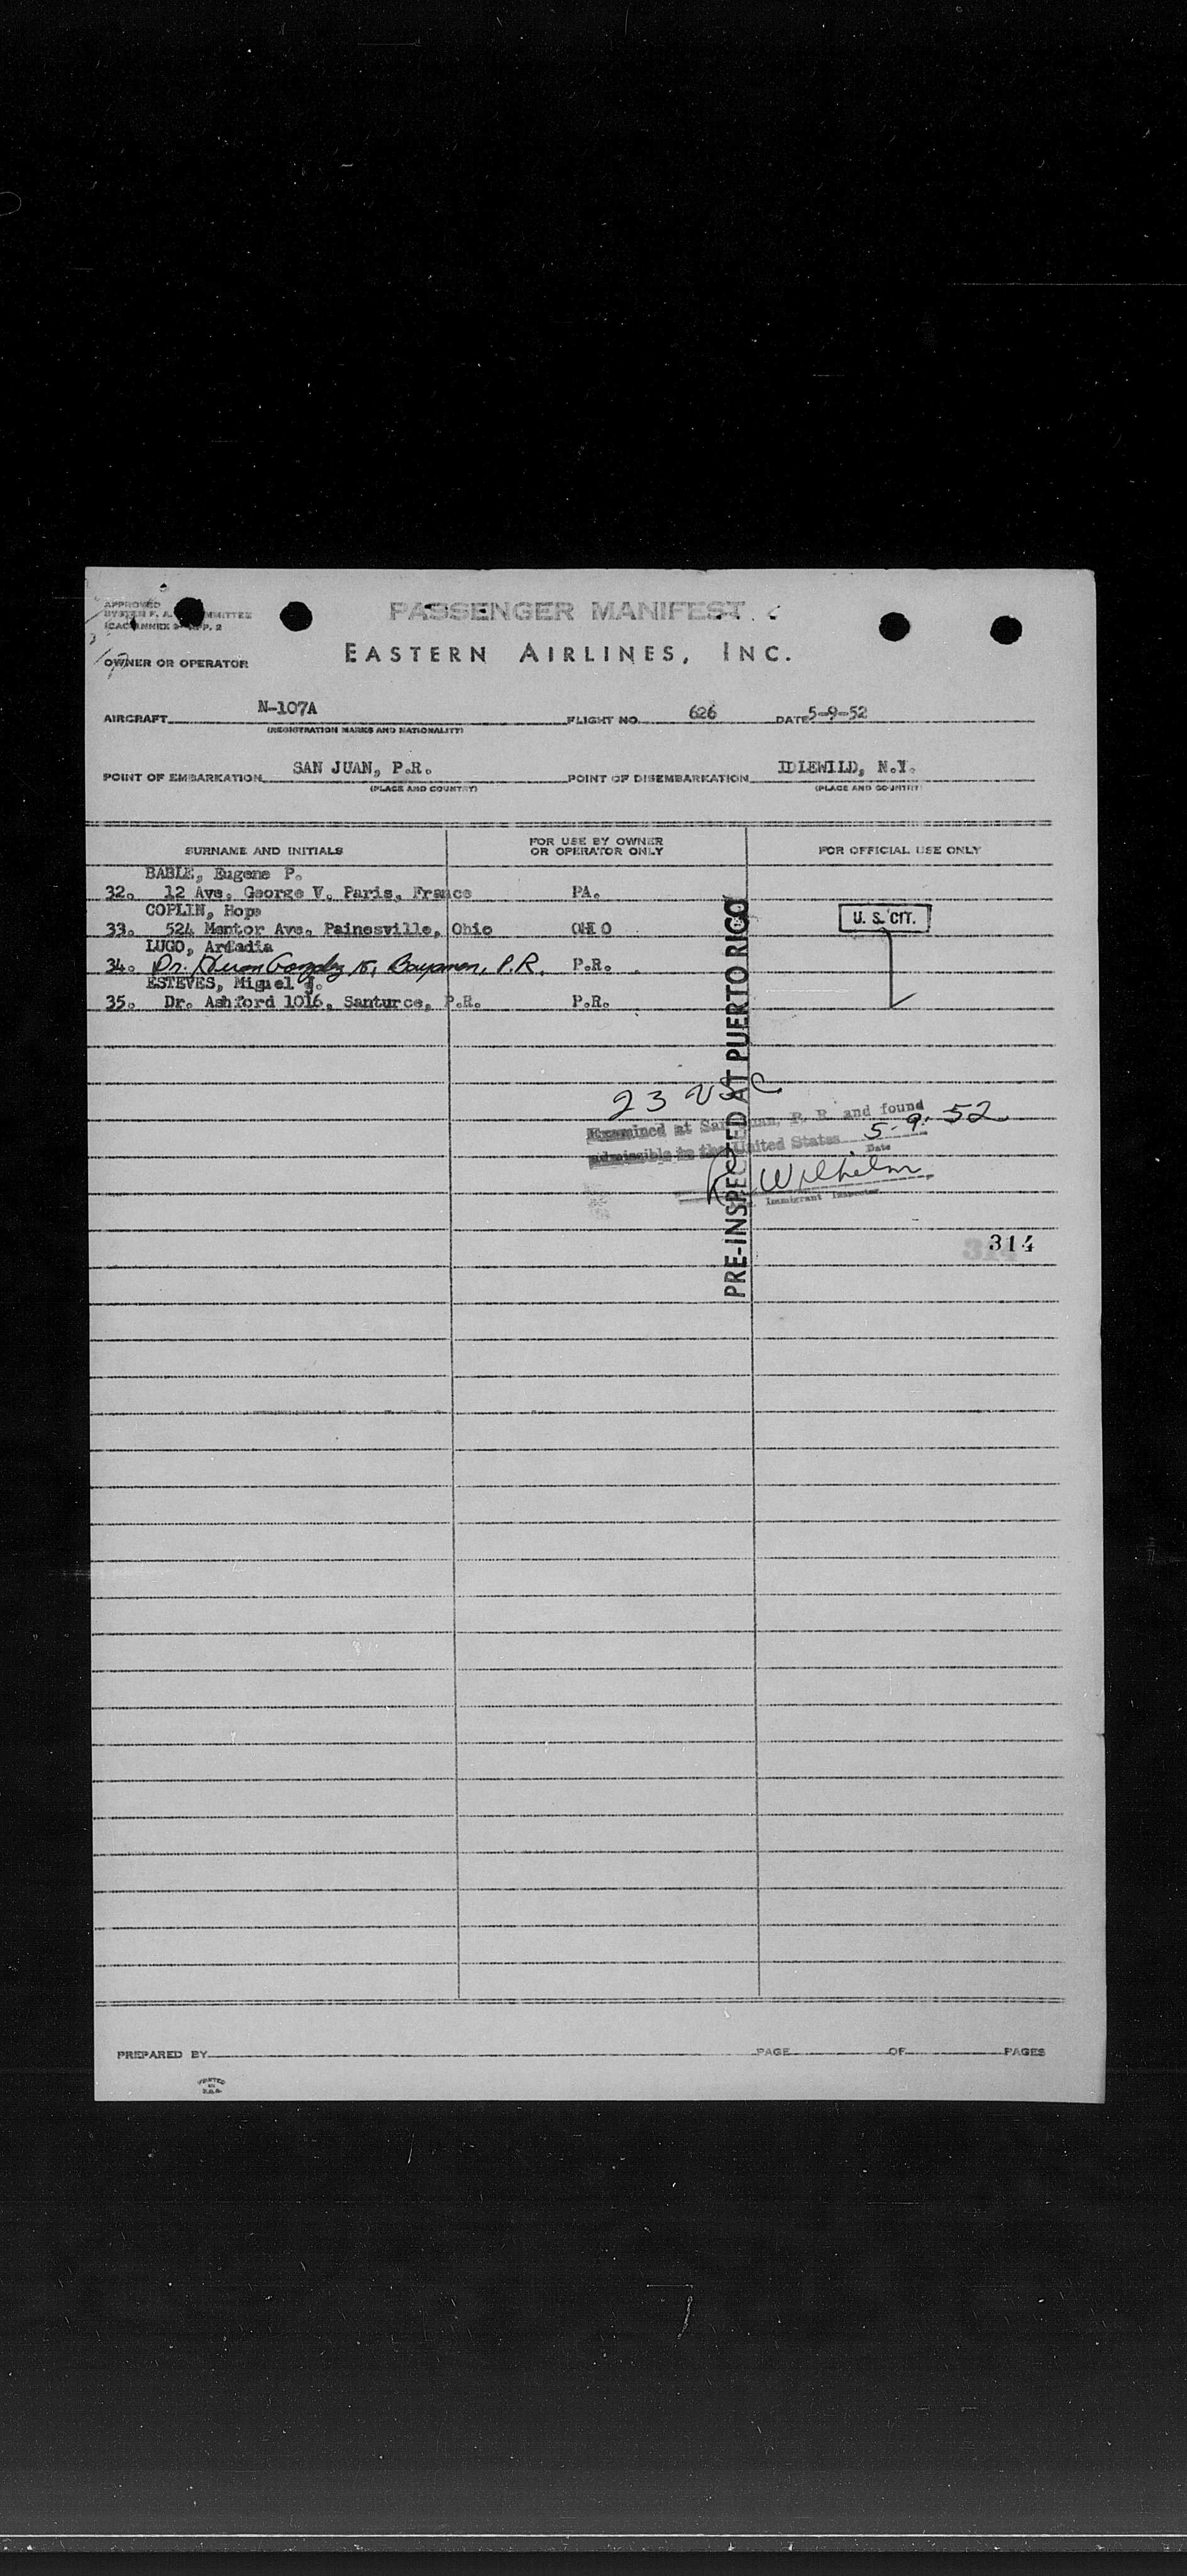 PASSENGER MANIFEST
APPROVED
ICAO ANNEX 9 APP. 2
EASTERN AIRLINES, INC.
OWNER OR OPERATOR
AIRCRAFT N-107A FLIGHT NO. 626 DATE 5-9-52
(REGISTRATION MARKS AND NATIONALITY)
POINT OF EMBARKATION SAN JUAN, P.R. POINT OF DISEMBARKATION IDLEWILD, N.Y.
(PLACE AND COUNTRY) (PLACE AND COUNTRY)
SURNAME AND INITIALS FOR USE BY OWNER OR OPERATOR ONLY FOR OFFICIAL USE ONLY
BABLE, Eugene P.
32. 12 Ave. George V. Paris, France PA.
COPLIN, Hope
33. 524 Mentor Ave. Painesville, Ohio OHIO U. S. CIT.
LUGO, Arcadia
34. Dr. 15, Bayamon, P.R. P.R.
ESTEVES, Miguel J.
35. Dr. Ashford 1016, Santurce, P.R. P.R.
PRE-INSPECTED AT PUERTO RICO
23 USC
Examined at San Juan, P. R. and found
admissible in the United States 5-9-52
Date
Wilhelm
Immigrant Inspector
314
PREPARED BY PAGE OF PAGES
PRINTED
IN
U.S.A.